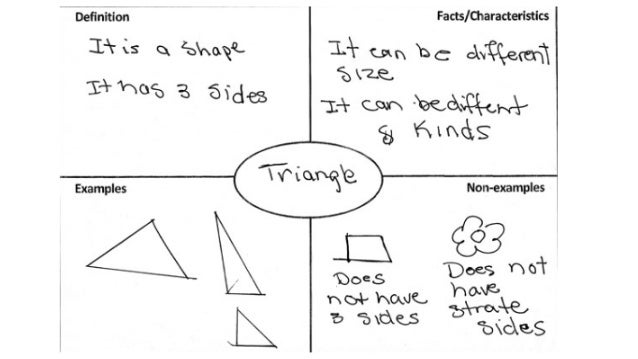 Definition
It is a shape
It has 3 sides
Facts/Characteristics
It can be different
size
It can be diffent
Kinds
Triangle
Examples
Non-examples
Does
not have
3 sides
Does not
have
strate
sides